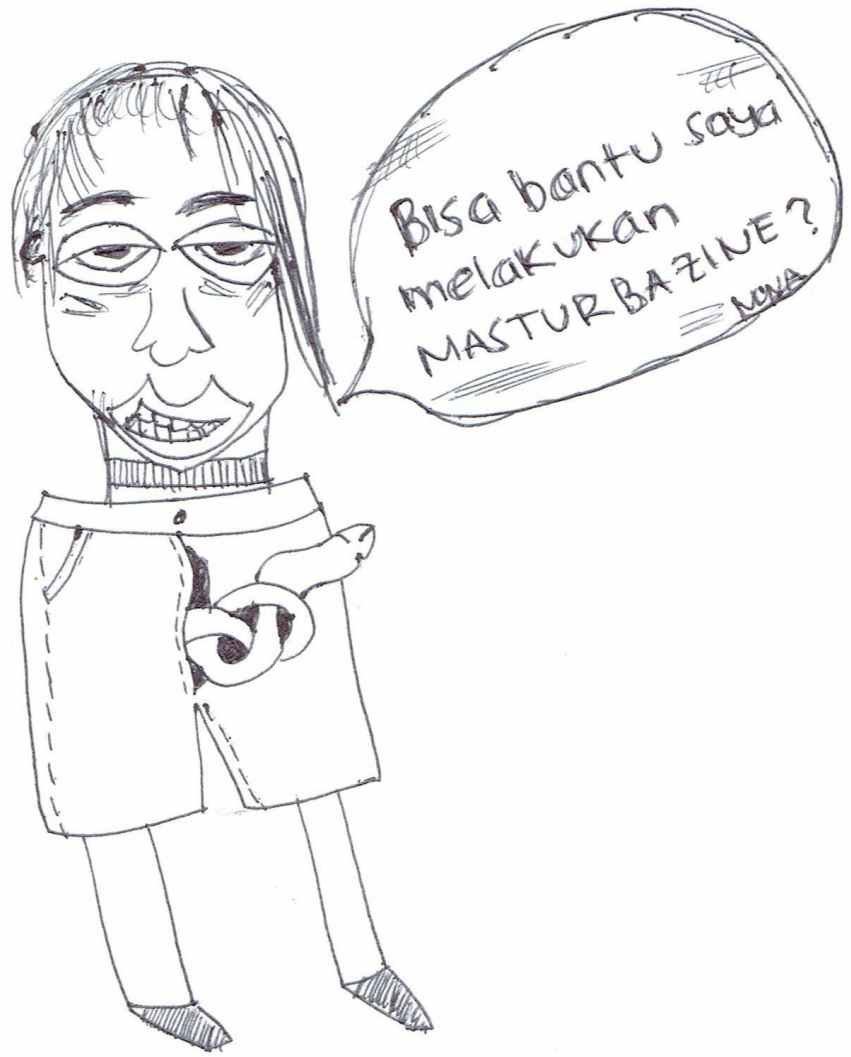 Bisa bantu saya
melakukan
MASTURBAZINE?
NONA